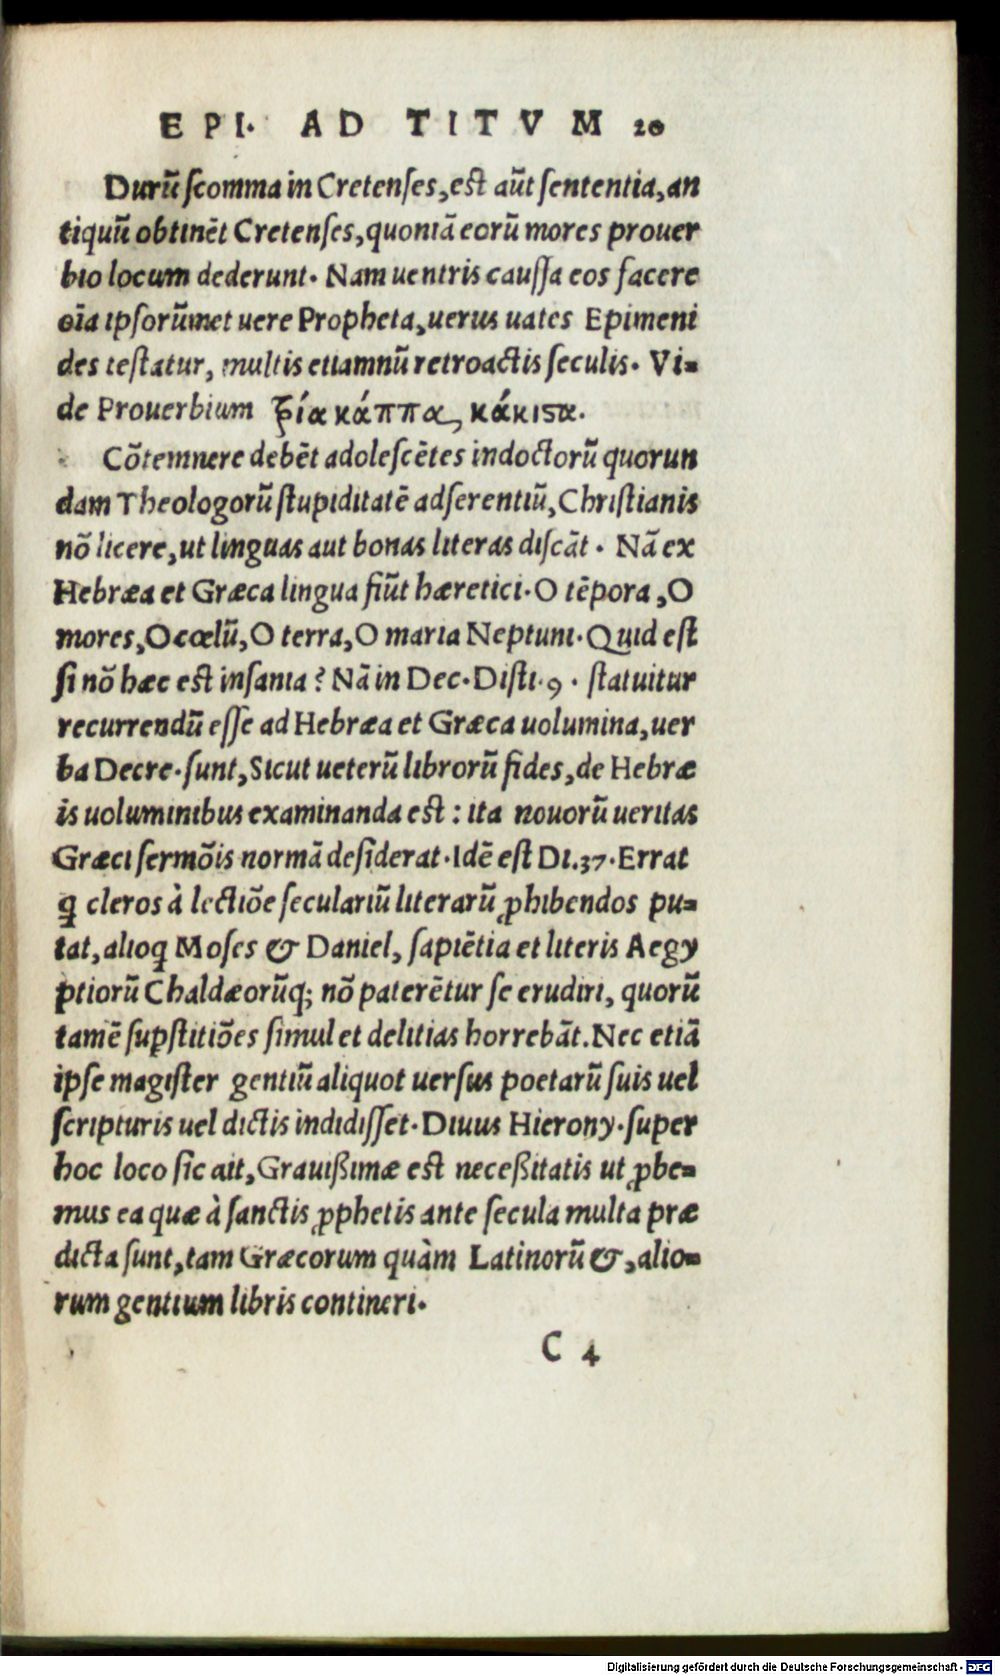 EPI. AD TITVM 20
Durū scomma in Cretenses, est aūt sententia, an
tiquū obtinēt Cretenses, quoniā eorū mores prouer
bio locum dederunt. Nam uentris caussa eos facere
oīa ipsorūmet uere Propheta, uerus uates Epimeni
des testatur, multis etiamnū retroactis seculis. Vi-
de Prouerbium τρία κάππα, κάκιϛα.
Cōtemnere debēt adolescētes indoctorū quorun
dam Theologorū stupiditatē adserentiū, Christianis
nō licere, ut linguas aut bonas literas discāt. Nā ex
Hebræa et Græca lingua fiūt hæretici. O tēpora, O
mores, O cœlū, O terra, O maria Neptuni. Quid est
si nō hæc est insania? Nā in Dec. Disti. 9. statuitur
recurrendū esse ad Hebræa et Græca uolumina, uer
ba Decre. sunt, Sicut ueterū librorū fides, de Hebræ
is uoluminibus examinanda est: ita nouorū ueritas
Græci sermōis normā desiderat. Idē est Di. 37. Errat
ꝗ cleros à lectiōe seculariū literarū ꝓhibendos pu-
tat, alioꝗ Moses & Daniel, sapiētia et literis Aegy
ptiorū Chaldæorūq; nō paterētur se erudiri, quorū
tamē suꝑstitiōes simul et delitias horrebāt. Nec etiā
ipse magister gentiū aliquot uersus poetarū suis uel
scripturis uel dictis indidisset. Diuus Hierony. super
hoc loco sic ait, Grauißimæ est neceßitatis ut ꝓbe-
mus ea quæ à sanctis ꝓphetis ante secula multa præ
dicta sunt, tam Græcorum quàm Latinorū &, alio-
rum gentium libris contineri.
C 4
Digitalisierung gefördert durch die Deutsche Forschungsgemeinschaft - DFG